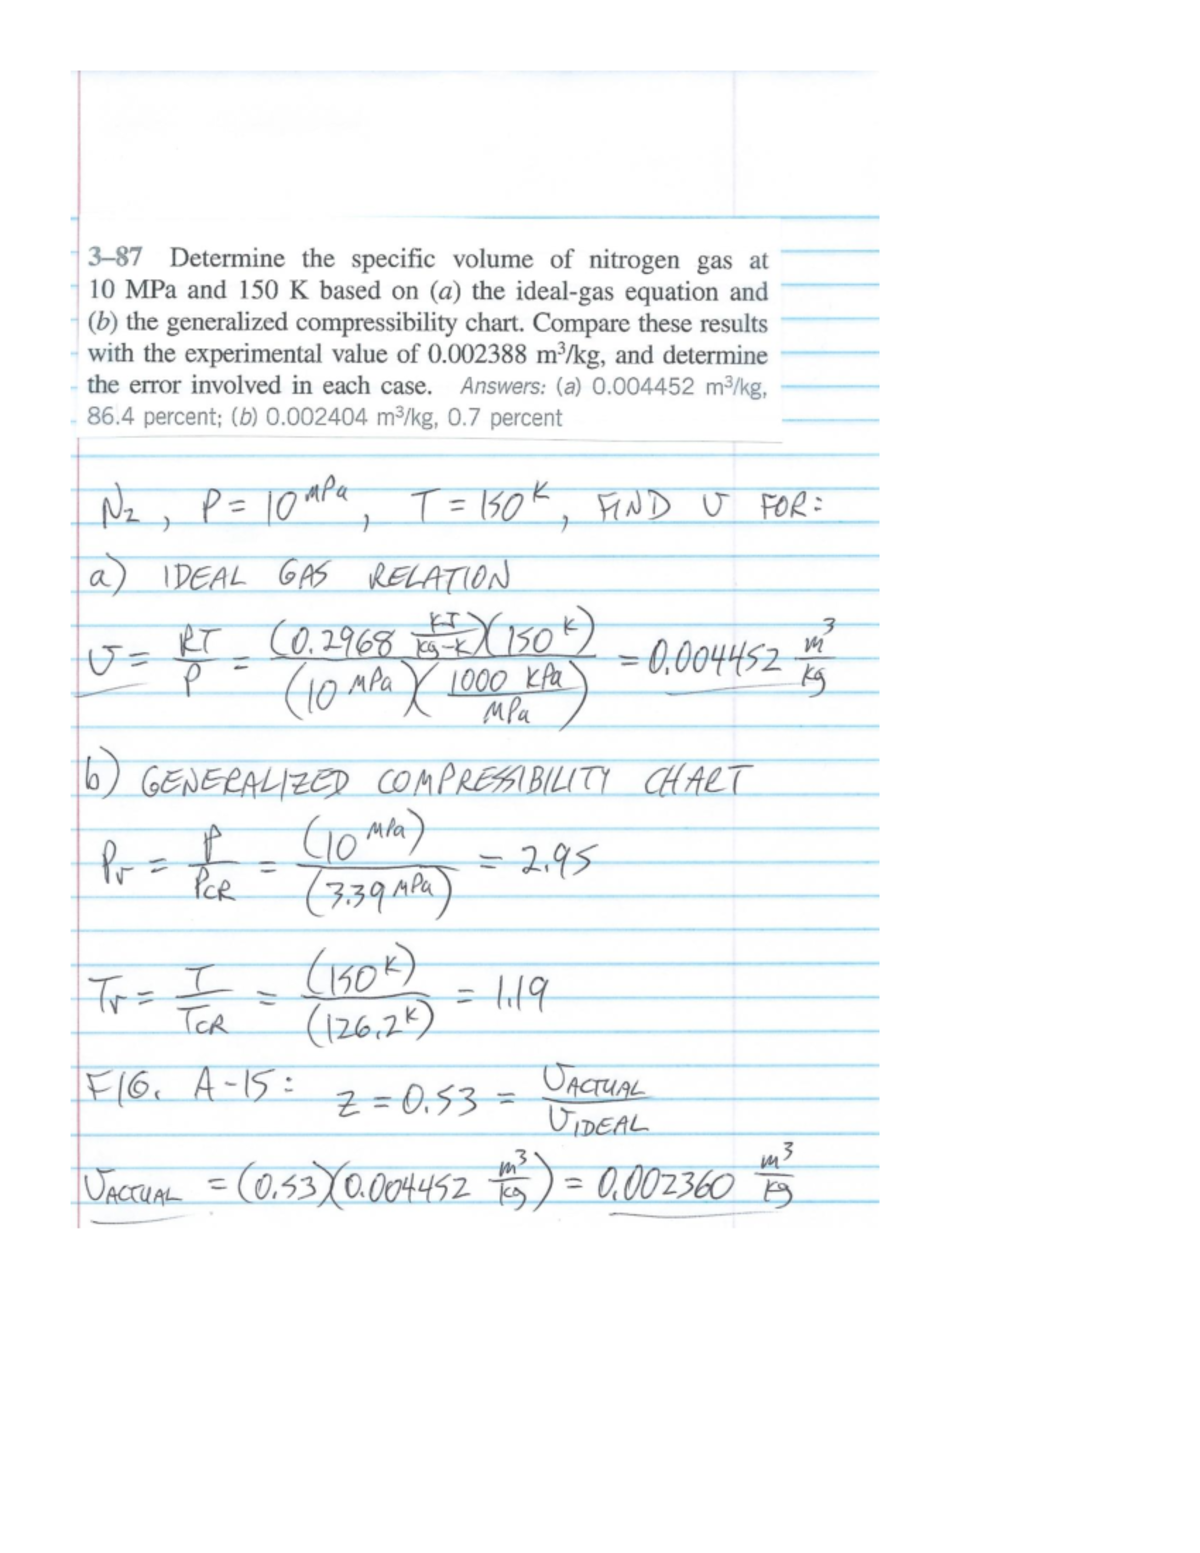 3–87 Determine the specific volume of nitrogen gas at
10 MPa and 150 K based on (a) the ideal-gas equation and
(b) the generalized compressibility chart. Compare these results
with the experimental value of 0.002388 m³/kg, and determine
the error involved in each case. Answers: (a) 0.004452 m³/kg,
86.4 percent; (b) 0.002404 m³/kg, 0.7 percent
N₂, P = 10 MPa, T = 150 K, FIND υ FOR:
a) IDEAL GAS RELATION
υ = RT/P = (0.2968 KJ/Kg-K)(150 K) / (10 MPa)(1000 KPa/MPa) = 0.004452 m³/kg
b) GENERALIZED COMPRESSIBILITY CHART
Pr = P/PCR = (10 MPa)/(3.39 MPa) = 2.95
Tr = T/TCR = (150 K)/(126.2 K) = 1.19
FIG. A-15: Z = 0.53 = υACTUAL/υIDEAL
υACTUAL = (0.53)(0.004452 m³/kg) = 0.002360 m³/kg